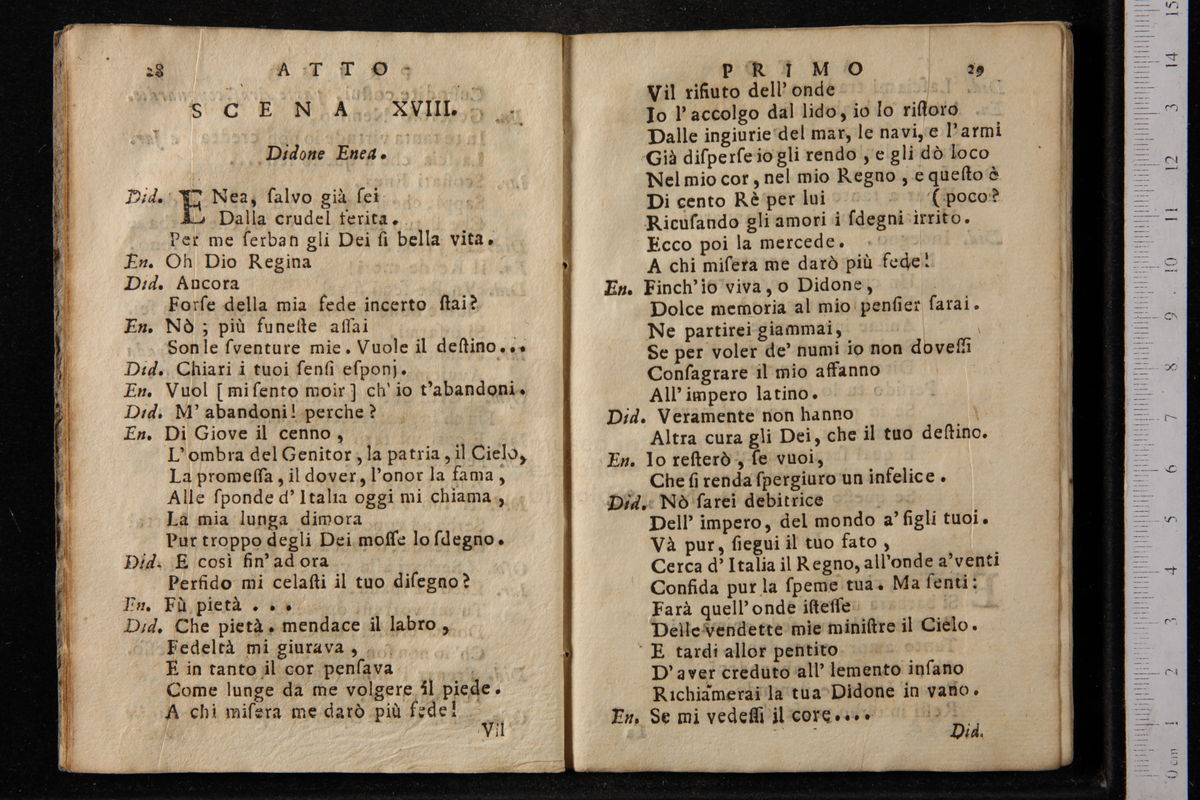 28 ATTO
SCENA XVIII.
Didone Enea.
Did. ENea, ſalvo già ſei
Dalla crudel ferita.
Per me ſerban gli Dei ſi bella vita.
En. Oh Dio Regina
Did. Ancora
Forſe della mia fede incerto ſtai?
En. Nò; più funeſte aſſai
Son le ſventure mie. Vuole il deſtino...
Did. Chiari i tuoi ſenſi eſponj.
En. Vuol [mi ſento moir] ch' io t'abandoni.
Did. M' abandoni! perche?
En. Di Giove il cenno,
L'ombra del Genitor, la patria, il Cielo,
La promeſſa, il dover, l'onor la fama,
Alle ſponde d' Italia oggi mi chiama,
La mia lunga dimora
Pur troppo degli Dei moſſe lo ſdegno.
Did. E così fin' ad ora
Perfido mi celaſti il tuo diſegno?
En. Fù pietà...
Did. Che pietà. mendace il labro,
Fedeltà mi giurava,
E in tanto il cor penſava
Come lunge da me volgere il piede.
A chi miſera me darò più fede!
Vil
PRIMO 29
Vil rifiuto dell' onde
Io l' accolgo dal lido, io lo riſtoro
Dalle ingiurie del mar, le navi, e l'armi
Già diſperſe io gli rendo, e gli dò loco
Nel mio cor, nel mio Regno, e queſto è
Di cento Rè per lui (poco?
Ricuſando gli amori i ſdegni irrito.
Ecco poi la mercede.
A chi miſera me darò più fede!
En. Finch'io viva, o Didone,
Dolce memoria al mio penſier ſarai.
Ne partirei giammai,
Se per voler de' numi io non doveſſi
Conſagrare il mio affanno
All' impero latino.
Did. Veramente non hanno
Altra cura gli Dei, che il tuo deſtino.
En. Io reſterò, ſe vuoi,
Che ſi renda ſpergiuro un infelice.
Did. Nò ſarei debitrice
Dell' impero, del mondo a' figli tuoi.
Và pur, ſiegui il tuo fato,
Cerca d' Italia il Regno, all'onde a' venti
Confida pur la ſpeme tua. Ma ſenti:
Farà quell' onde iſteſſe
Delle vendette mie miniſtre il Cielo.
E tardi allor pentito
D' aver creduto all' lemento inſano
Richiamerai la tua Didone in vano.
En. Se mi vedeſſi il core....
Did.
0 cm 1 2 3 4 5 6 7 8 9 10 11 12 13 14 15